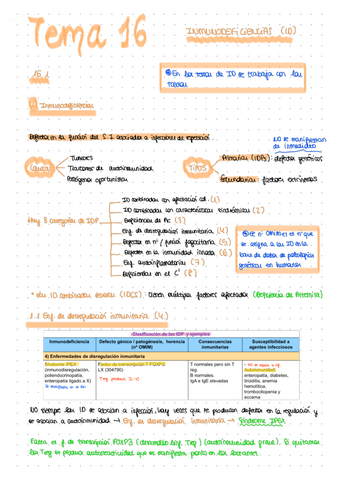 Tema 16
INMUNODEFICIENCIAS (ID)
16.1
En los temas de ID se trabaja con las
Inmunodeficiencias
Defectos en la función del S.I asociados a infecciones de repetición.
NO se manifiestan de inmediato
Causa
Tumores
Trastornos de autoinmunidad
Patógenos oportunistas
TIPOS
Primarias (IDPs): defectos genéticos
Secundarias: factores extrínsecos
Hay 8 categorías de IDP
ID combinadas con afectación cel. (1)
ID combinadas con características sindrómicas (2)
Deficiencias de Ac (3)
Enf. de desregulación inmunitaria (4)
Defectos en nº / función fagocitaria (5)
Defectos en la inmunidad innata (6)
Enf. autoinflamatorias (7)
Deficiencias en el Cʹ (8)
El nº OMIM es el nº que se asigna a las ID en la base de datos de patologías genéticas en humanos
* Las ID combinadas (IDCS) tienen múltiples factores afectados
1.1 Enf. de desregulación inmunitaria (4)
Clasificación de las IDP y ejemplos
Inmunodeficiencia
Defecto génico / patogénesis, herencia (nº OMIM)
Consecuencias inmunitarias
Susceptibilidad a agentes infecciosos
4) Enfermedades de disregulación inmunitaria
Síndrome IPEX (inmunodisregulación, poliendocrinopatía, enteropatía ligada a X)
Factor de transcripción T FOXP3: LX (304790)
T normales pero sin T reg. B normales. IgA e IgE elevadas
Autoinmunidad: enteropatía, diabetes, tiroiditis, anemia hemolítica, trombocitopenia y eccema
NO siempre las ID se asocian a infección, hay veces que se producen defectos en la regulación y
se asocian a autoinmunidad → Enf. de desregulación inmunitaria → Síndrome IPEX
Falta el f. de transcripción FOXP3 (desarrollo de Treg) (autoinmunidad grave). Si quitamos
las Treg se produce autorreactividad que se manifiesta pronto en los lactantes.